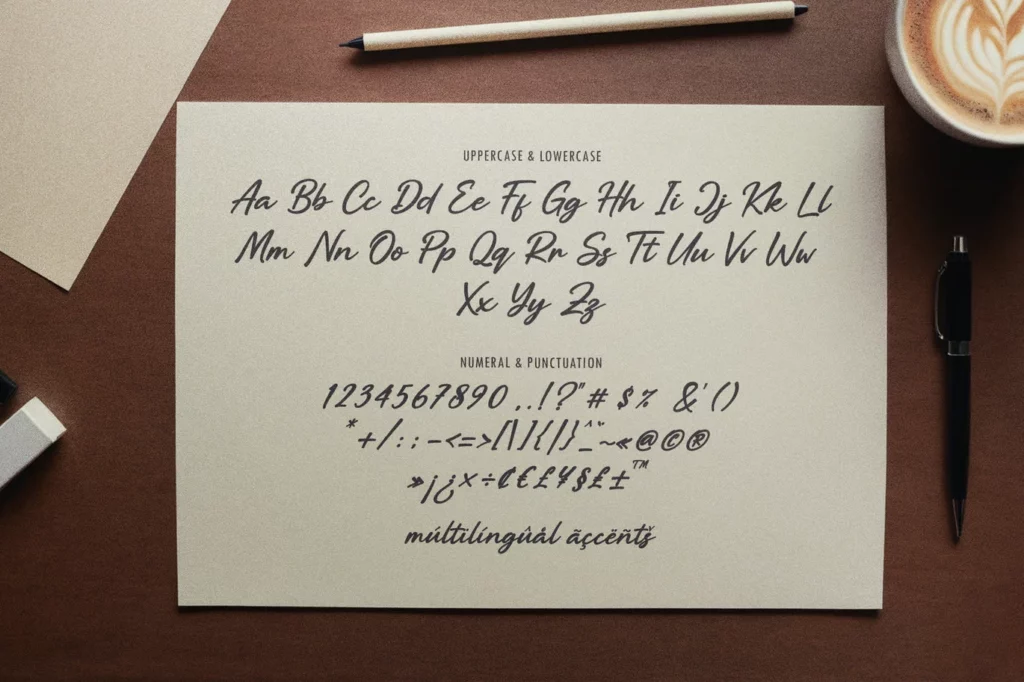 UPPERCASE & LOWERCASE
Aa Bb Cc Dd Ee Ff Gg Hh Ii Jj Kk Ll
Mm Nn Oo Pp Qq Rr Ss Tt Uu Vv Ww
Xx Yy Zz
NUMERAL & PUNCTUATION
1234567890 ,.!?"# $% &'()
*+/:;-<=>[\]{|}_^˘~«@©®
»¡¿×÷¢€£¥§£±™
múltilíngûål ãçcëñtš